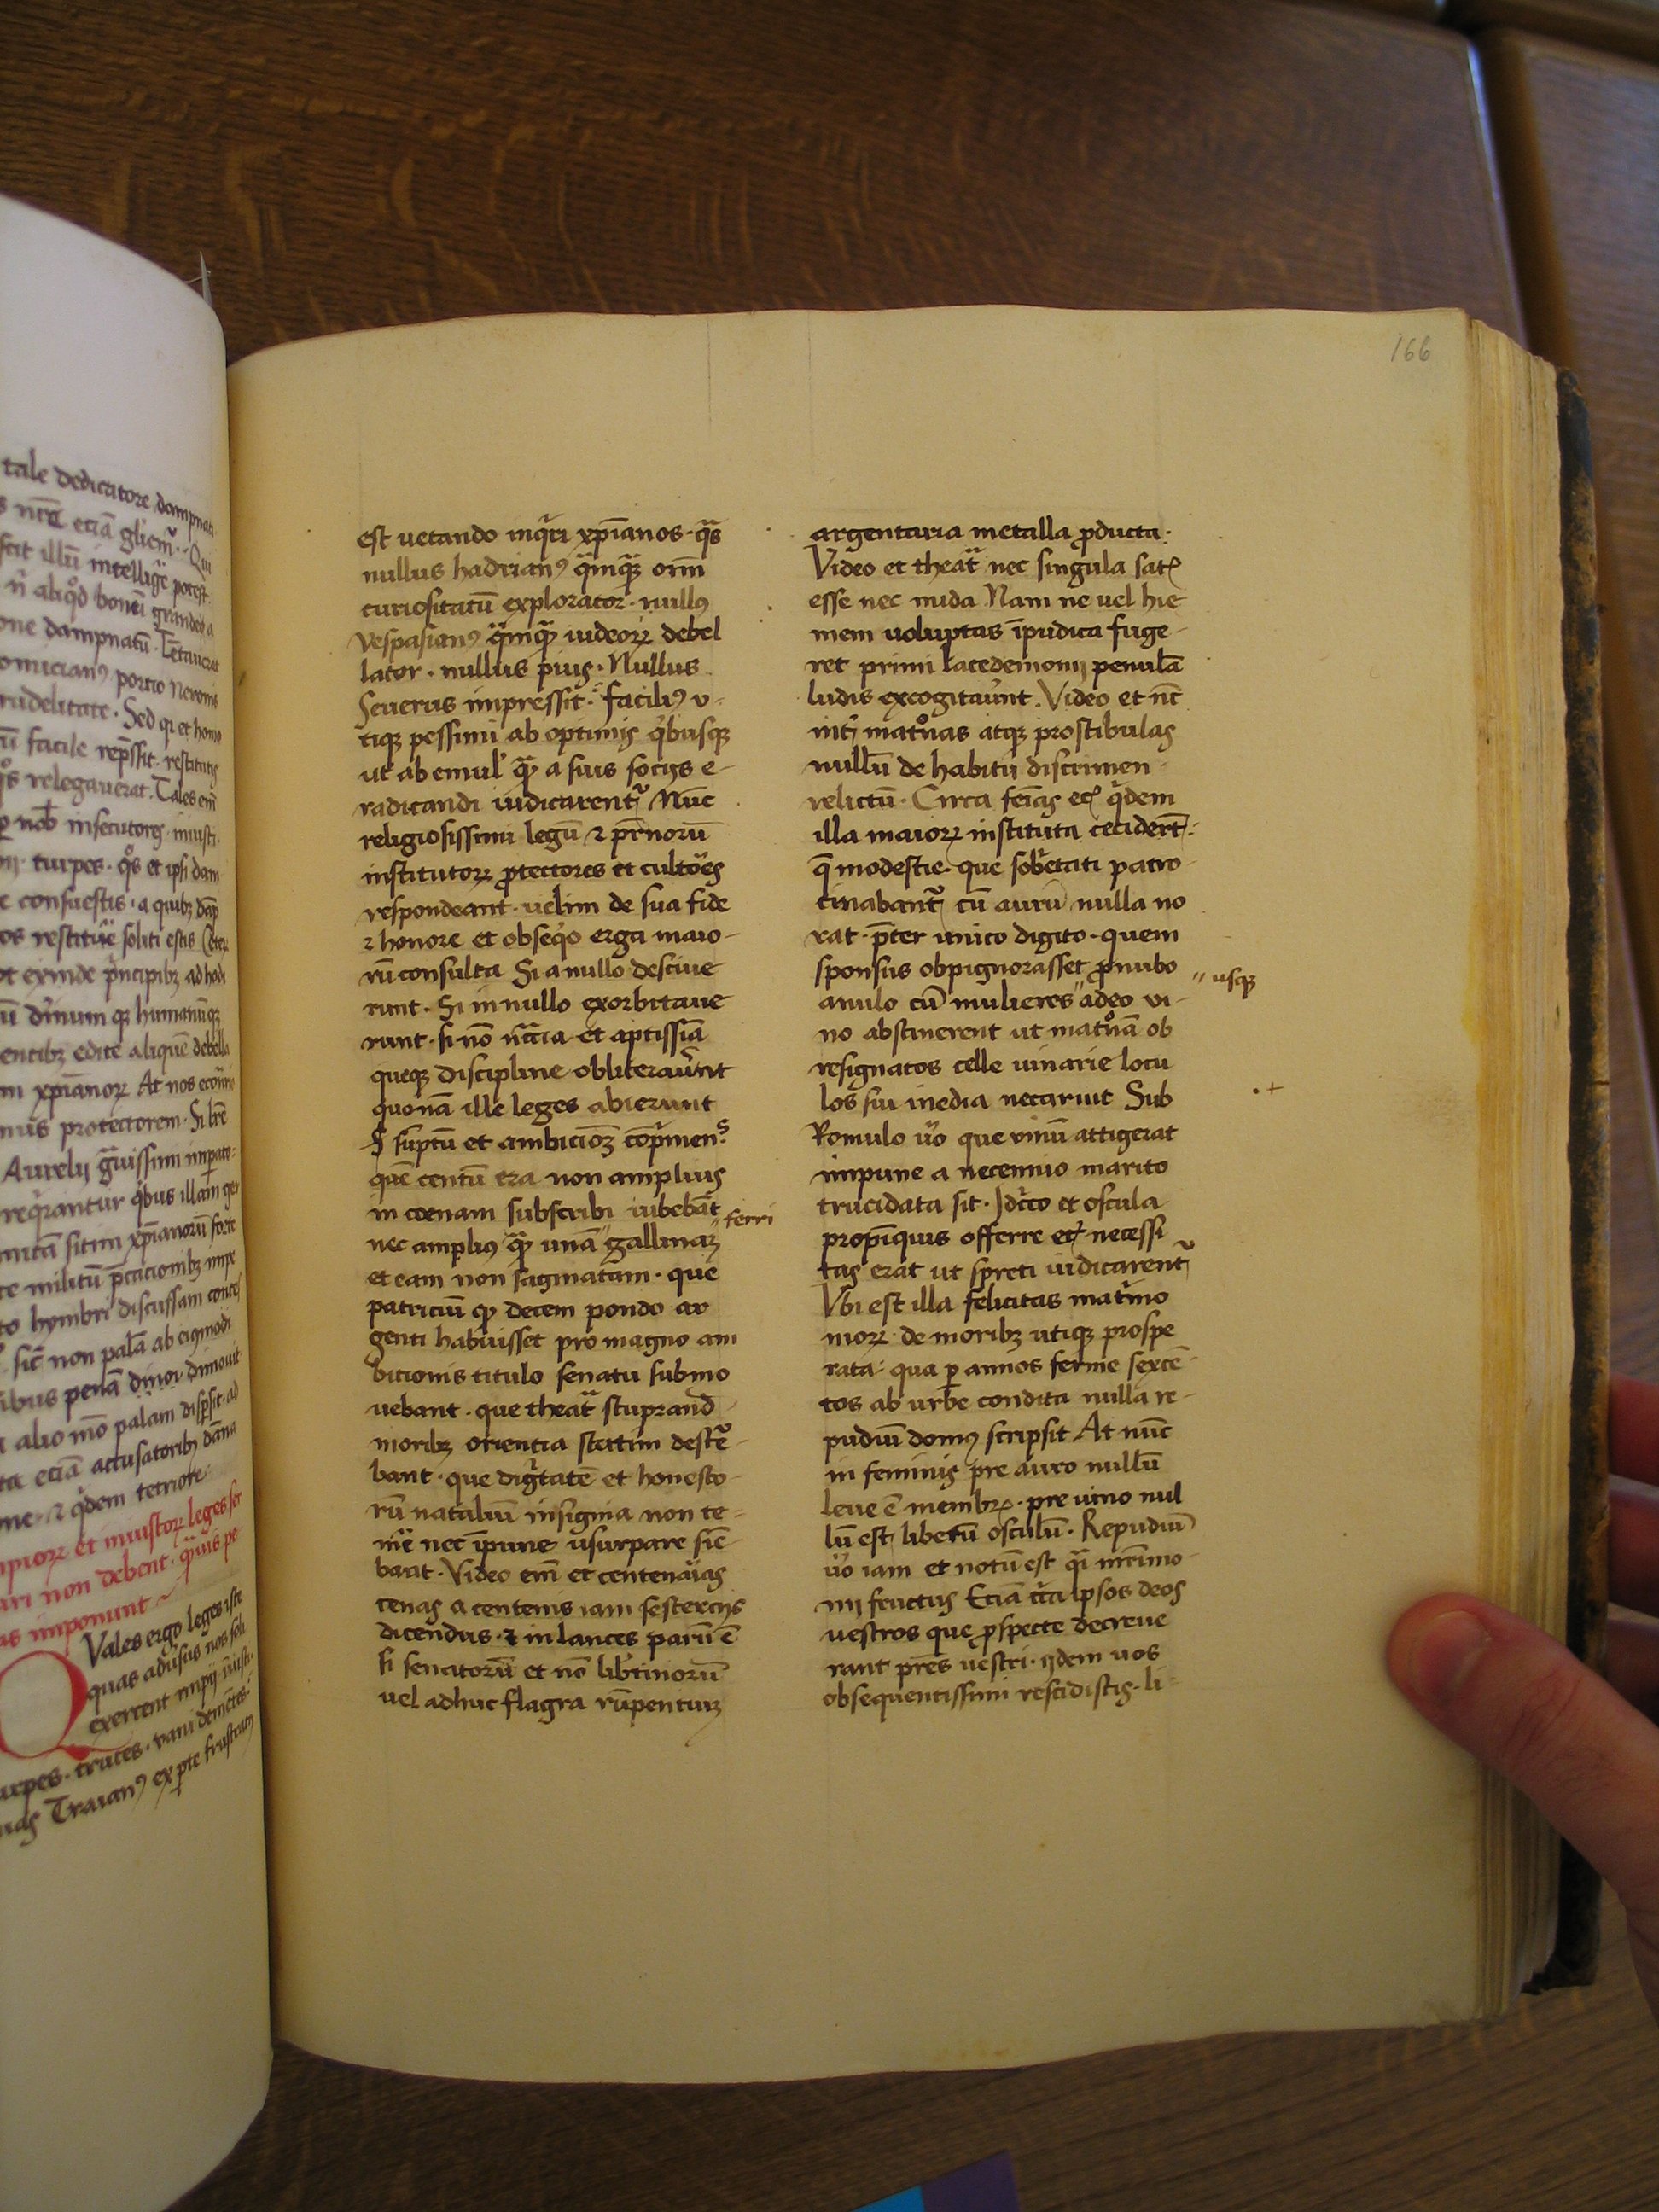 tale dedicatore dampnati
s nr̄e eciā gliem̃. Qui
scit illū intelligẽ potest
n̄ aliqͦd bonū grande a
one dampnatū. Tetauerat
omicianꝰ portio Neronis
rudelitate. Sed qi et homo
ū facile rep̄ssit. restitutis
qͦs relegauerat. Tales em̄
ꝑ nob̄ insecutores iniusti
turpes. qͦs et ipsi dam
e consuestis. a quibꝫ dāp
os restituẽ soliti estis Ceterꝫ
ot exinde pͥncipibꝫ ad hodi
ū diuinum qꝫ humanūqꝫ
entibꝫ edite aliquē debella
m xp̄ianoꝝ At nos econtrͣio
mus protectorem. Si lr̄e
Aurelij gͣuissimi imperato
reqͥrantur qͥbus illam ger
manicā sitim xp̄ianorū forte
te militū p̄cacionibꝫ impe
to hymbri discussam conces
sic̄ non palā ab eiꝰmodi
ibus penā dimouit
alio mō palam disp̄sit. ad
ta eciā accusatoribꝫ dāna
one. ⁊ qͥdem tetriore
mpioꝝ et iniustoꝝ leges ser
ari non debent. qͣuis pe
as imponunt
Quales ergo leges iste
quas adūsus nos soli
exercent impij iniusti
urpes. truces. vani dementes
uas Traianꝰ ex ꝑte frustratus
166
est uetando inqͥri xp̄ianos. qͣs
nullus hadrianꝰ qͣmqͣꝫ om̄
curiositatū explorator. nullꝰ
Vespasianꝰ qͣmqͣꝫ iudeoꝝ debel
lator. nullus pius. Nullus
Seuerus impressit. facilꝰ v-
tiqꝫ pessimi ab optimis qͥbusqꝫ
ut ab emul̕ qͣꝫ a suis socijs e-
radicandi iudicarentᷣ Nūc
religiosissimi legū ⁊ pr̄norū
institutoꝝ ꝓtectores et cultores
respondeant. uelim de sua fide
⁊ honore et obseqͦ erga maio-
rū consulta Si a nullo desciue
runt. Si in nullo exorbitaue
runt. si nō nc̄cia et aptissīa
queqꝫ discipline obliterauerūnt
quonā ille leges abierunt
sūptū et ambicioꝫ cōpͥmen.ͤˢ
quē centū era non amplius
in coenam subscribi iubebāt
nec ampliꝰ qͣꝫ unā ″gallinaꝫ ″ferri
et eam non saginatam. que
patriciū qꝫ decem pondo ar
genti habuisset pro magno am
bicionis titulo senatu submo
uebant. que theatͣ stuprand̄
moribꝫ orientia statim destrͤ-
bant. que digͥtatē et honesto-
rū nataliū insignia non te-
mẽ nec īpune usurpare sinē
bant. Video em̄ et centenarias
cenas a centenis iam sestercijs
dicendus. ⁊ in lances parū ē
si senatorū et nō libtinorū
uel adhuc flagra rūpentiuꝫ
argentaria metalla ꝓducta.
Video et theatͣ nec singula satꝭ
esse nec nuda Nam ne uel hie
mem voluptas īpudica fuge-
ret primi lacedemonij penulā
ludis excogitauͤnt. Video et nͨ
int̕ matͦnas atqꝫ prostibulas
nullū de habitu discrimen
relictū. Circa feīas ecꝭ qͥdem
illa maioꝝ instituta cecider̄t.
q̄ modestie. que sobͥetati patro-
cinabantᷣ cū aurū nulla no
rat. p̄ter unico digito. quem
sponsus obpignorasset ꝓnubo
anulo cū mulieres ″adeo vi- ″usqꝫ
no abstinerent ut matͦnā ob
resignatos celle uinarie locu
los sui inedia necarint Sub
Romulo uͦo que vinū attigerat
impune a necennio marito
trucidata sit. Idcͥco et oscula
propīquis offerre ecꝭ necessi
tas erat ut spretͥ iudicarentᷣ
Vbi est illa felicitas matͥmo
nioꝝ de moribꝫ utiqꝫ prospe
rata. qua ꝑ annos ferme sexcē-
tos ab urbe condita nulla re-
pudiū domꝰ scripsit At nūc
in feminis pre auro nullū
leue ē membrꝫ. pre uino nul
lū est libetū osculū. Repudiū
uͦo iam et notū est qͣi mr̄imo-
nij fructus Eciā cͥca ipsos deos
vestros que ꝓspecte decreue
rant pr̄es uestri. ijdem uos
obsequentissimi rescidistis. li-